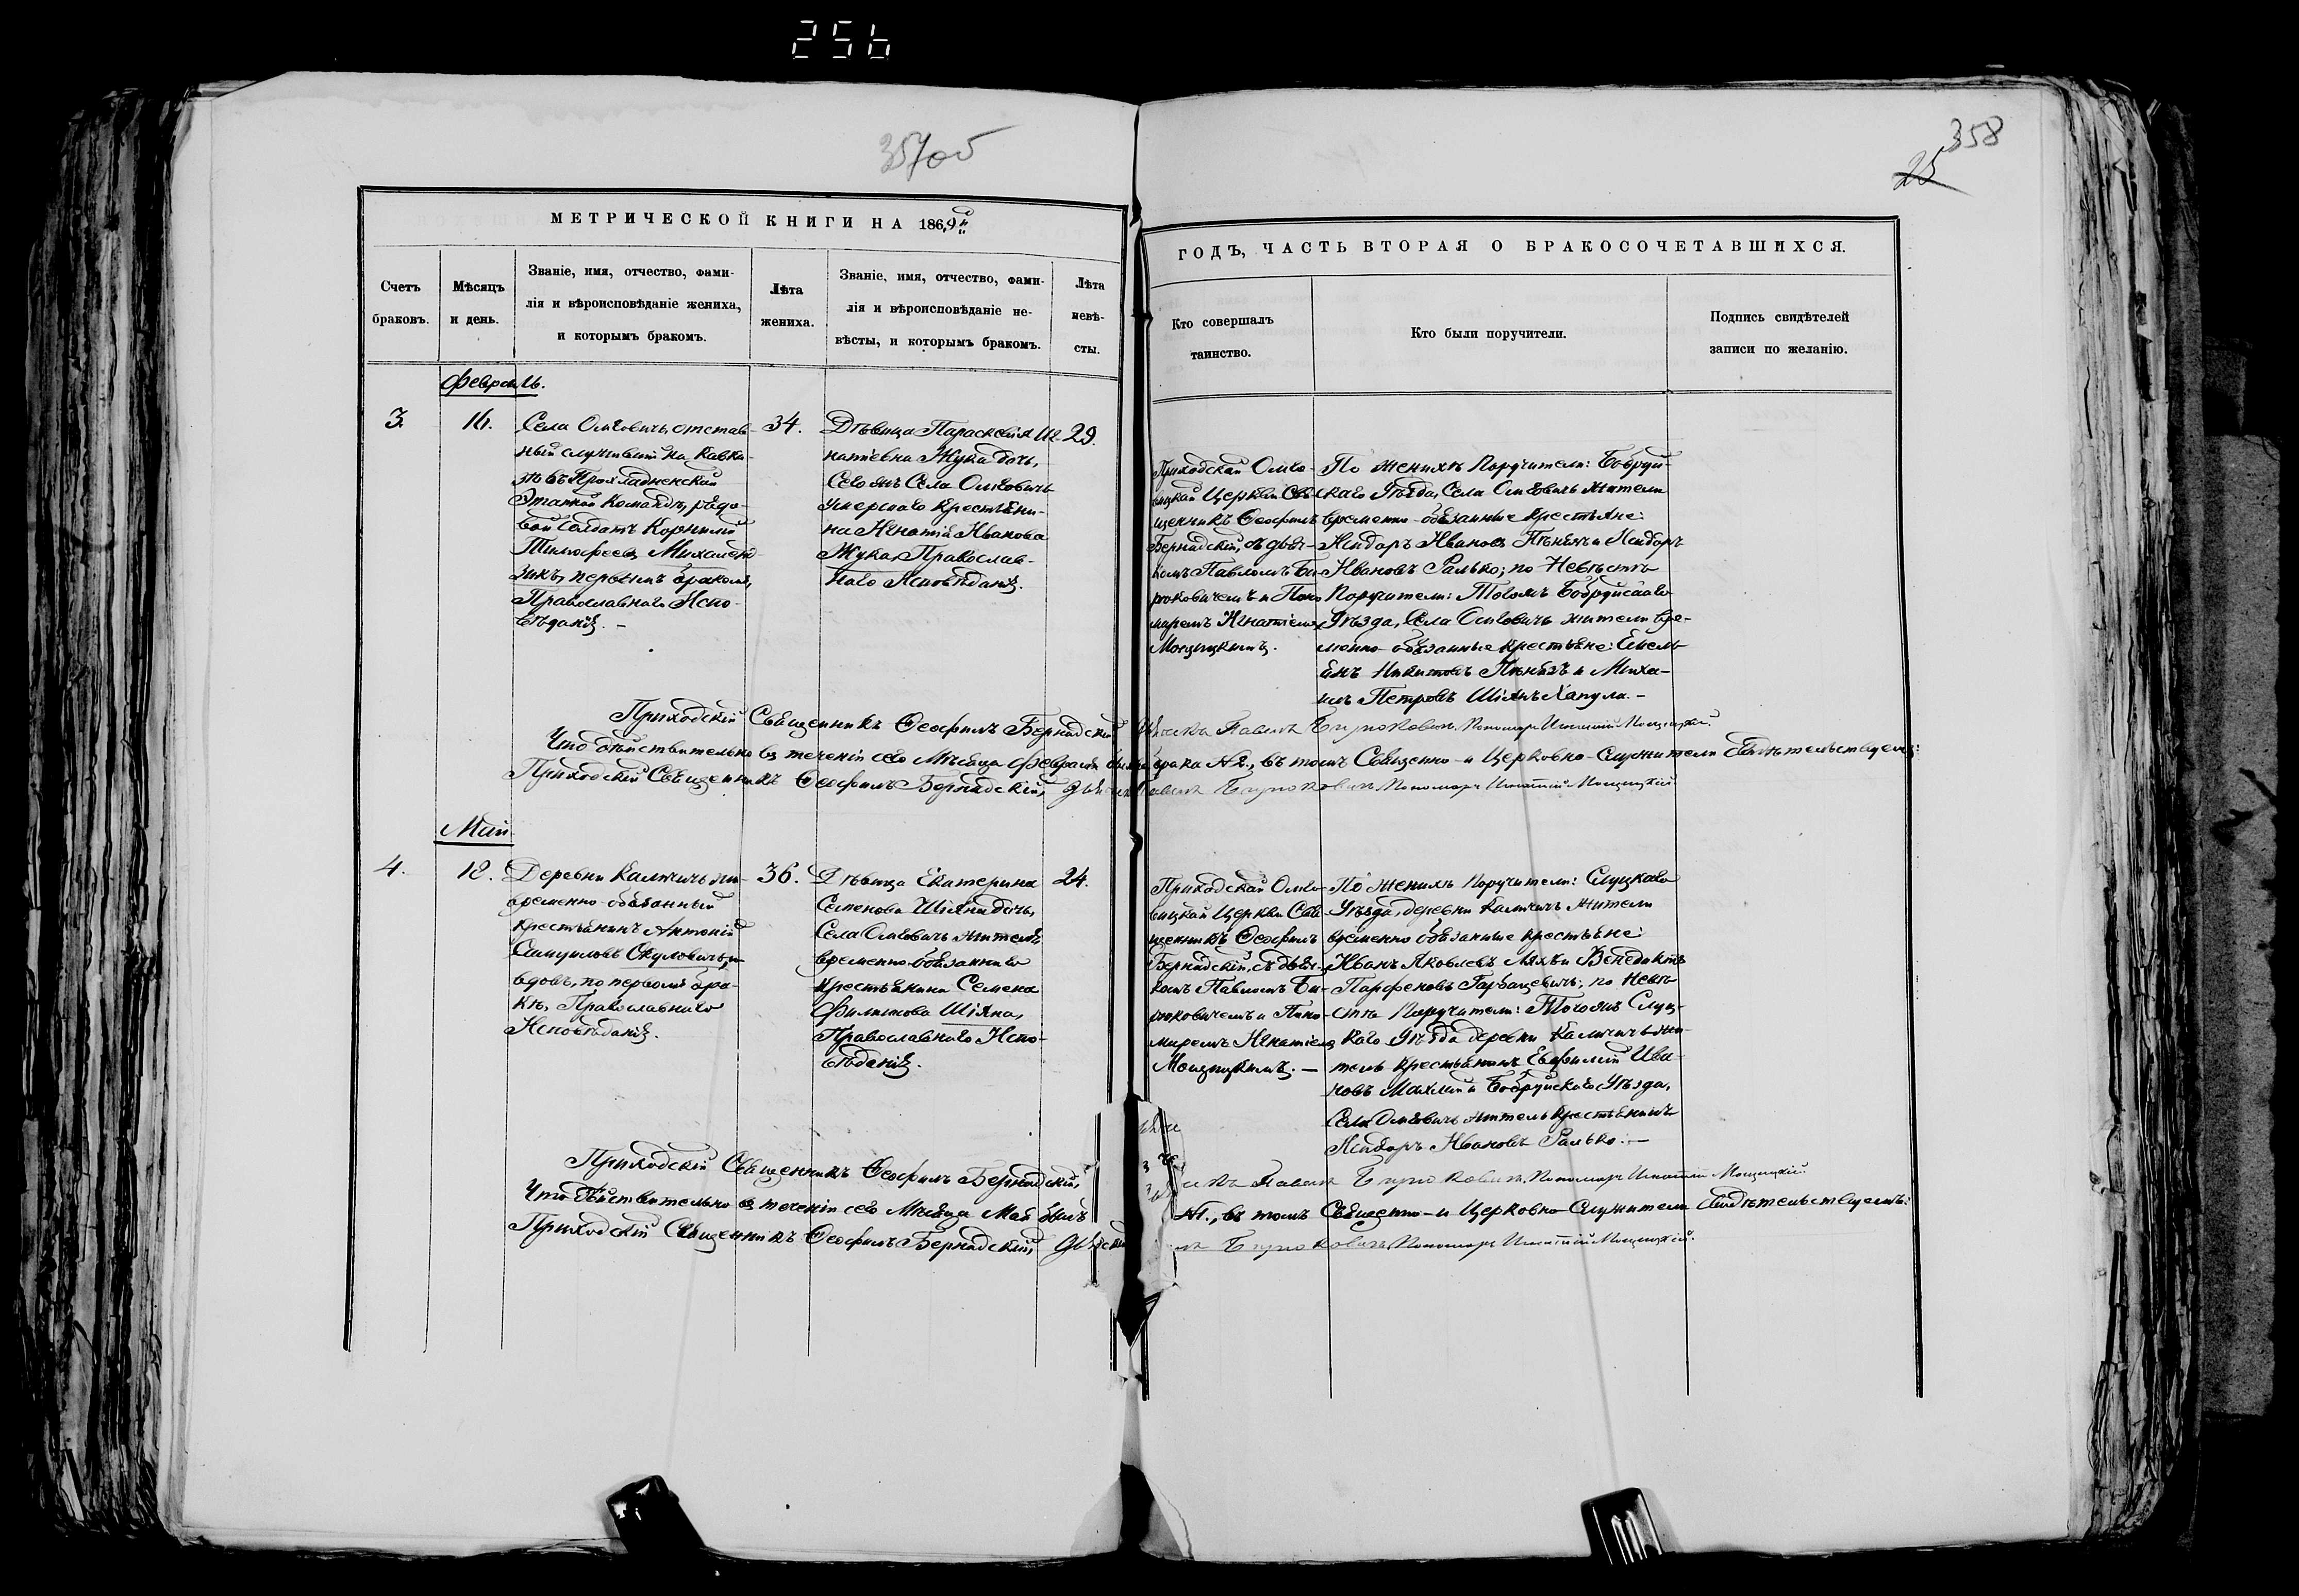 256
357об
358
25
МЕТРИЧЕСКОЙ КНИГИ НА 1869й
ГОДЪ, ЧАСТЬ ВТОРАЯ О БРАКОСОЧЕТАВШИХСЯ.
Счетъ
браковъ.
Мѣсяцъ
и день.
Званіе, имя, отчество, фами-
лія и вѣроисповѣданіе жениха,
и которымъ бракомъ.
Лѣта
жениха.
Званіе, имя, отчество, фами-
лія и вѣроисповѣданіе не-
вѣсты, и которымъ бракомъ.
Лѣта
невѣ-
сты.
Кто совершалъ
таинство.
Кто были поручители.
Подпись свидѣтелей
записи по желанію.
Февраль.
3.
16.
Села Омговичъ отстав-
ный служившій на Кавка-
зѣ въ Прохладненской
Этапной Командѣ, рядо-
вой Солдатъ Корнилій
первымъ бракомъ,
Православнаго Испо-
вѣданія. -
34.
Дѣвица Параскевія Иг-
натіевна Жука дочь,
Села Омговичъ
умершаго крестьяни-
на Игнатія Иванова
Жука, Православ-
наго Исповѣданія.
29.
Приходской Омго-
вицкой Церкви Свя-
щенникъ Ѳеофилъ
Бернадскій, съ дьяч-
комъ Павломъ Би-
рюковичемъ и Поно-
маремъ Игнатіемъ
Мощицкимъ.
По женихѣ Поручители: Бобруй-
скаго Уѣзда, Села Омговичъ жители
временно-обязанные крестьяне:
Исидоръ Ивановъ и Исидоръ
Ивановъ Ралько; по Невѣстѣ
Поручители: Тогожъ Бобруйскаго
Уѣзда, Села Омговичъ жители вре-
менно-обязанные крестьяне: Емель-
янъ Никитовъ и Миха-
илъ Петровъ Шіянъ Хапула. -
Приходскій Священникъ Ѳеофилъ Бернадскій, Дьячекъ Павелъ Бирюковичъ, Пономарь Игнатій Мощицкій.
Что дѣйствительно въ теченіи сего Мѣсяца Февраля было брака №., въ томъ Священно- и Церковно-Служители свидѣтельствуемъ:
Приходскій Священникъ Ѳеофилъ Бернадскій, Дьячекъ Павелъ Бирюковичъ, Пономарь Игнатій Мощицкій
Май
4.
18.
Деревни Калчичь жи-
временно-обязанный
крестьянинъ Антоній
Самуиловъ Окуловичъ,
вдовъ, по первомъ бра-
кѣ, Православнаго
Исповѣданія.
36.
Дѣвица Екатерина
Семенова Шіяна дочь,
Села Омговичъ жителя
временно-обязаннаго
крестьянина Семена
Филипова Шіяна,
Православнаго Испо-
вѣданія.
24.
Приходской Омго-
вицкой Церкви Свя-
щенникъ Ѳеофилъ
Бернадскій, съ дьяч-
комъ Павломъ Би-
рюковичемъ и Поно-
маремъ Игнатіемъ
Мощицкимъ. -
По женихѣ Поручители: Слуцкаго
Уѣзда, деревни Калчичь жители
временно обязанные крестьяне:
Иванъ Яковлевъ Ляхъ и Венедиктъ
Парфеновъ Горбацевичъ; по Невѣ-
стѣ Поручители: Тогожъ Слуц-
каго Уѣзда деревни Калчичь жи-
тель крестьянинъ Евфимій Ива-
новъ и Бобруйскаго Уѣзда,
Села Омговичъ житель крестьянинъ
Исидоръ Ивановъ Ралько. -
Приходскій Священникъ Ѳеофилъ Бернадскій, Павелъ Бирюковичъ, Пономарь Игнатій Мощицкій.
Что дѣйствительно въ теченіи сего Мѣсяца Мая былъ №., въ томъ Священно- и Церковно Служители свидѣтельствуемъ:
Приходскій Священникъ Ѳеофилъ Бернадскій, Бирюковичъ, Пономарь Игнатій Мощицкій.